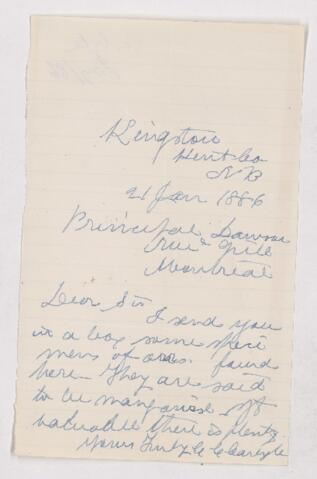 Kingston
Kent Co
NB
21 Jan 1886
Principal Dawson
McGill
Montreal
Dear Sir
I send you
in a box some speci
mens of ores found
here They are said
to be manganese If
valuable there is plenty
Yours truly C C Carlyle